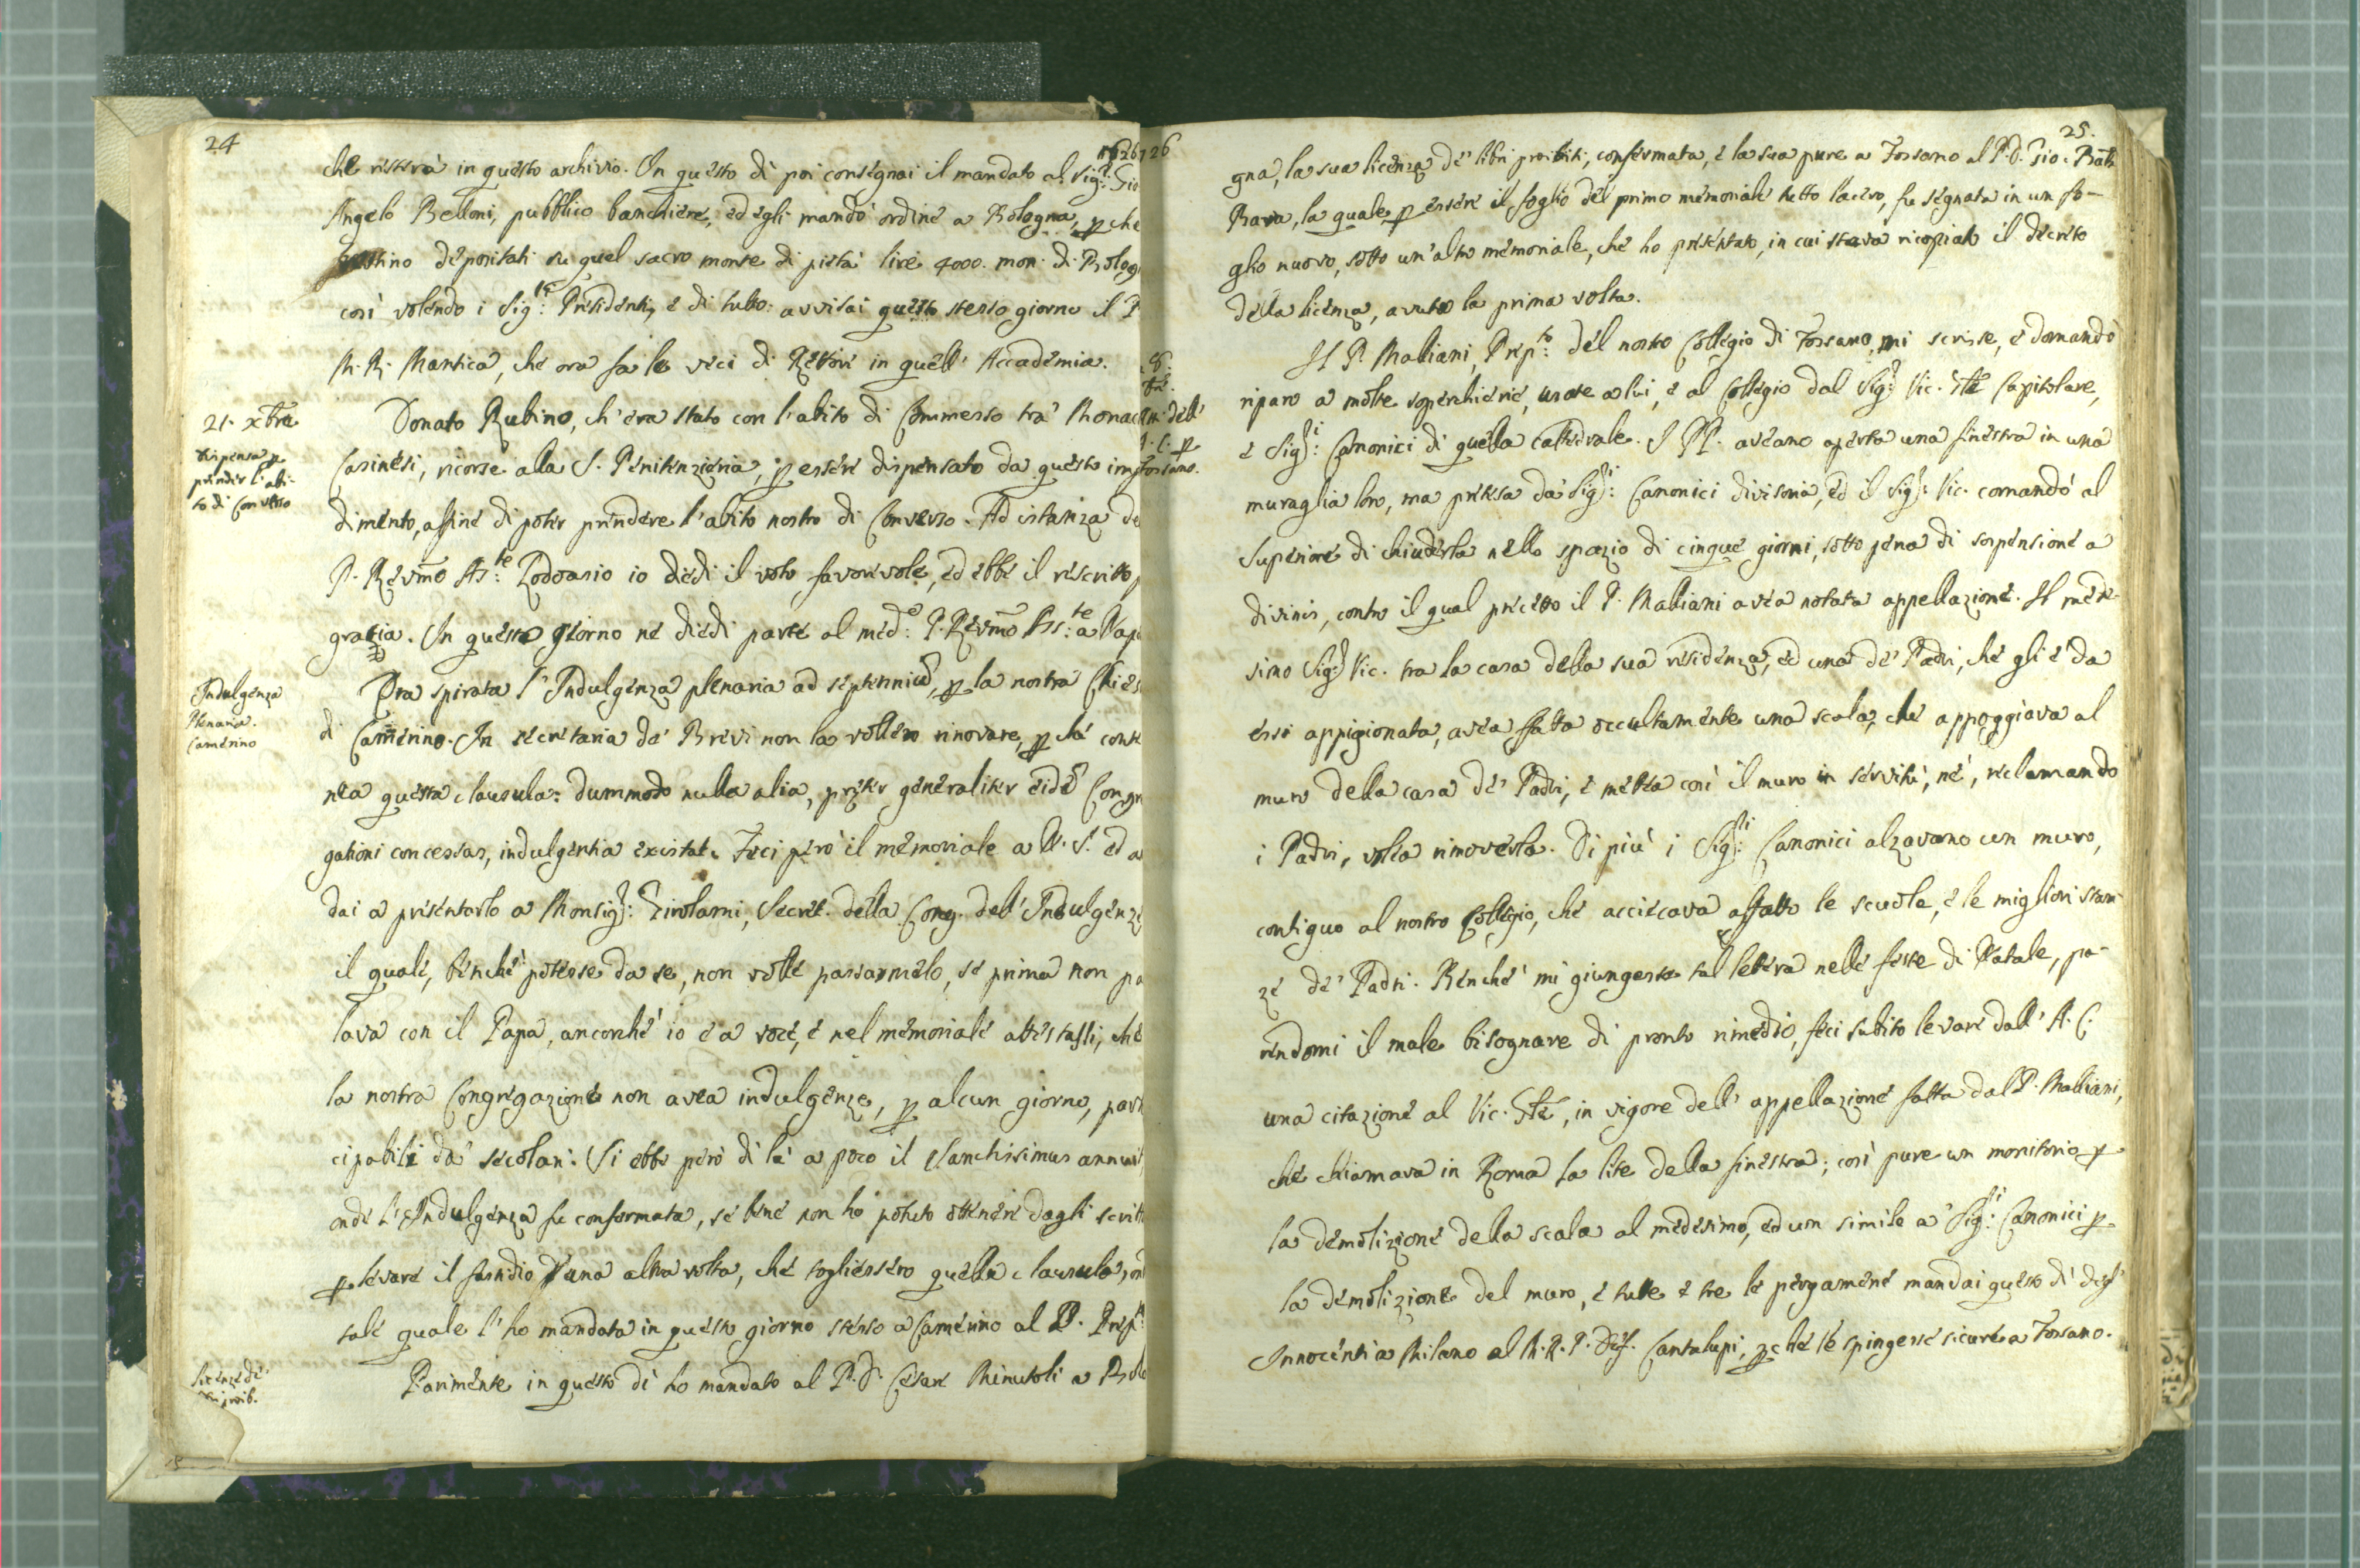 24
1726
che resterà in questo archivio. In questo dì poi consegnai il mandato al Sig.r Gio
Angelo Belloni, pubblico banchiere, ed egli mandò ordine a Bologna, pche
depositati su quel sacro monte di pietà lire 4000. mon. di Bolog
così volendo i Sig.ri Presidenti, e di tutto avvisai questo stesso giorno il P
M. R. Mantica, che ora fa le veci di Rettore in quell' Accademia.
21. Xbre
Dispensa p
prender l'abi-
to di Converso
Donato Rubino, ch'era stato con l'abito di Commesso tra' Monaci
Casinesi, ricorse alla S. Penitenzieria, p essere dispensato da questo imp
dimento, affine di poter prendere l'abito nostro di Converso. Ad istanza de
P. Revmo As.te Lodoasio io diedi il voto favorevole, ed ebbe il rescritto
grazia. In questo giorno ne diedi parte al med.o P. Revmo As.te a Nap
Indulgenza
Plenaria.
Camerino
Era spirata l'Indulgenza plenaria ad septennium, p la nostra Chies
di Camerino. In secretaria de' Brevi non la vollero rinovare, pchè conte
nea questa clausula: dummodo nulla alia, præter generaliter eide Congre
gationi concessas, indulgentia existat. Feci però il memoriale a N. S. ed a
dai a presentarlo a Monsig.r Girolami, Secret. della Cong. dell' Indulgenze
il quale, benchè potesse da se, non volle passarmelo, se prima non pa
lava con il Papa, ancorchè io e a voce, e nel memoriale attestassi, che
la nostra Congregazione non avea indulgenze, p alcun giorno, part
cipabili da' secolari. Si ebbe però di là a poco il Sanctissimus annuit
onde l'Indulgenza fu confermata, se bene non ho potuto ottenere dagli scritt
p levare il fastidio d'una altra volta, che togliessero quella clausula, on
tale quale l'ho mandata in questo giorno stesso a Camerino al P. Prep.to
Licenze de'
prib.
Parimente in questo dì ho mandato al P. D. Cesare Minutoli a Bolo
25.
gna, la sua licenza de' libri proibiti, confermata, e la sua pure a Fossano al P. D. Gio: Batta
Bava, la quale, p essere il foglio del primo memoriale tutto lacero, fu segnata in un fo-
glio nuovo, sotto un' altro memoriale, che ho presentato, in cui stava ricopiato il decreto
della licenza, avuta la prima volta.
Il P. Malliani, Prep.to del nostro Collegio di Fossano, mi scrisse, e domandò
riparo a molte soperchierie, usate a lui, e al Collegio dal Sig.r Vic. Gle Capitolare,
e Sig.ri Canonici di quella cattedrale. I PP. aveano aperta una finestra in una
muraglia loro, ma pretesa da' Sig.ri Canonici divisoria, ed il Sig.r Vic. comandò al
Superiore di chiuderla nello spazio di cinque giorni, sotto pena di sospensione a
divinis, contro il qual precetto il P. Malliani avea notata appellazione. Il mede-
simo Sig.r Vic. tra la casa della sua residenza, ed una de' Padri, che gli è da
essi appigionata, avea fatta occultamente una scala, che appoggiava al
muro della casa de' Padri, e mettea così il muro in servitù, nè, reclamando
i Padri, volea rimoverla. Di più i Sig.ri Canonici alzavano un muro,
contiguo al nostro Collegio, che acciecava affatto le scuole, e le migliori stan-
ze de' Padri. Benchè mi giungesse tal lettera nelle feste di Natale, pa-
rendomi il male bisognare di pronto rimedio, feci subito levare dall' A. C.
una citazione al Vic. Gle, in vigore dell' appellazione fatta dal P. Malliani,
che chiamava in Roma la lite della finestra; così pure un monitorio p
la demolizione della scala al medesimo, ed un simile a' Sig.ri Canonici p
la demolizione del muro, e tutte e tre le pergamene mandai questo dì degl'
Innocenti a Milano al M. R. P. Def. Cantalupi, pchè le spingesse sicure a Fossano.